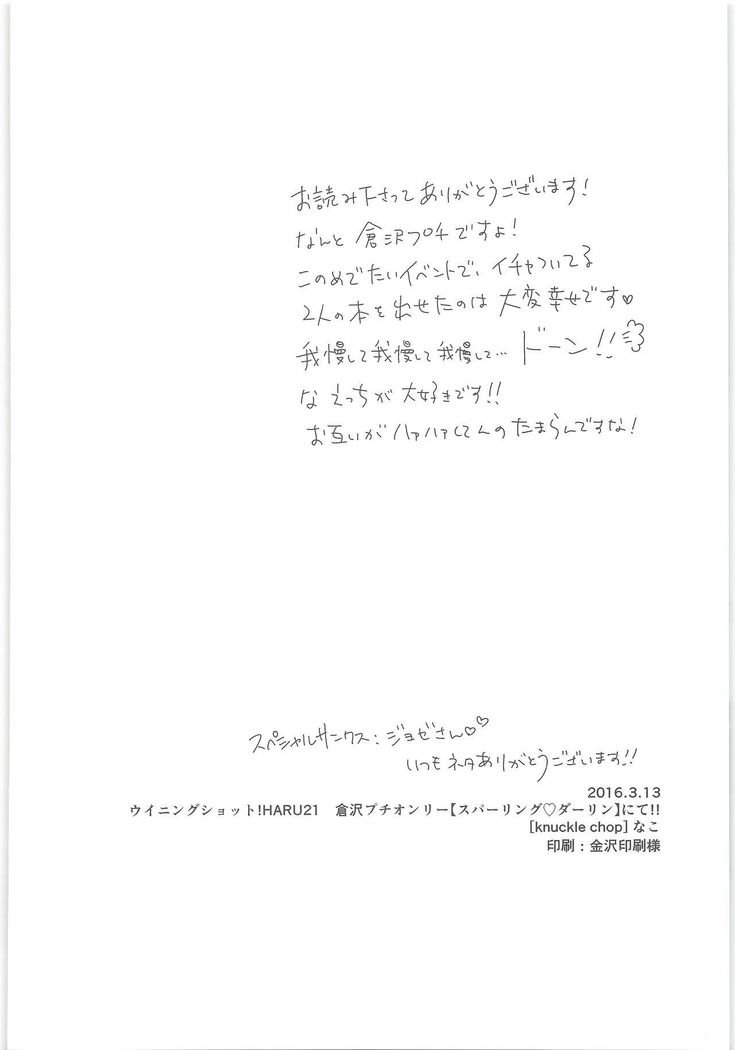 お読み下さってありがとうございます!
なんと倉沢プチですよ!
このめでたいイベントで、イチャついてる
2人の本を出せたのは大変幸せです♥
我慢して我慢して我慢して… ドーン!!
なえっちが大好きです!!
お互いがハァハァしてんのたまらんですな!
スペシャルサンクス:ジョゼさん♡♡
いつもネタありがとうございます!!
2016.3.13
ウイニングショット!HARU21 倉沢プチオンリー【スパーリング♡ダーリン】にて!!
[knuckle chop] なこ
印刷:金沢印刷様